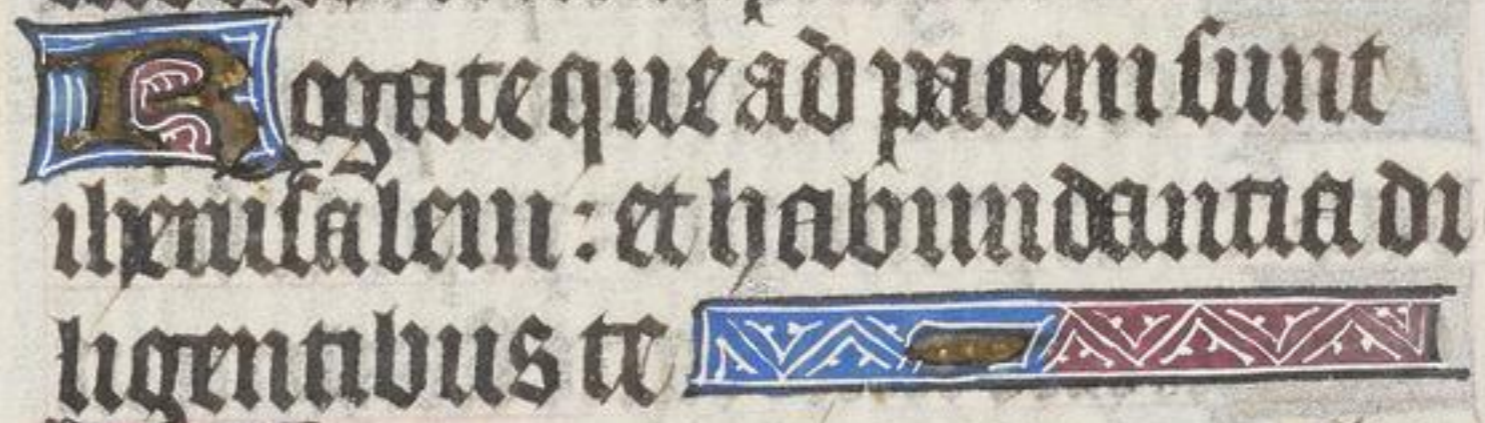 Rogate que ad pacem sunt
iherusalem : et habundantia di
ligentibus te